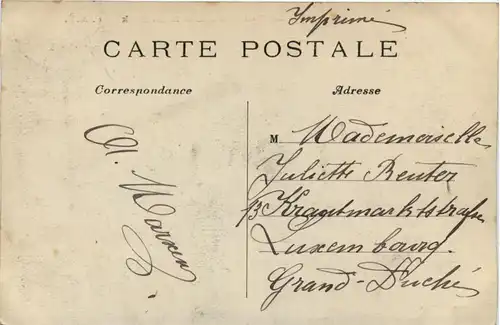 Imprimé
CARTE POSTALE
Correspondance
Adresse
M Mademoiselle
Juliette Reuter
13 Krautmarktstrasse
Luxembourg.
Grand-Duché